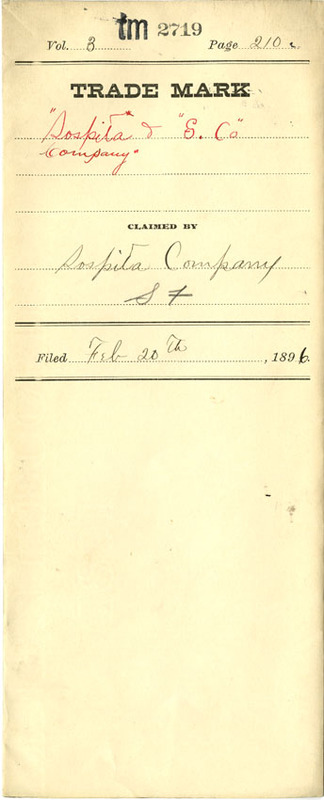 tm 2719
Vol. 3 Page 210
TRADE MARK
"Sospita" & "S. Co"
Company"
CLAIMED BY
Sospita Company
S F
Filed Feb 20th, 1896.